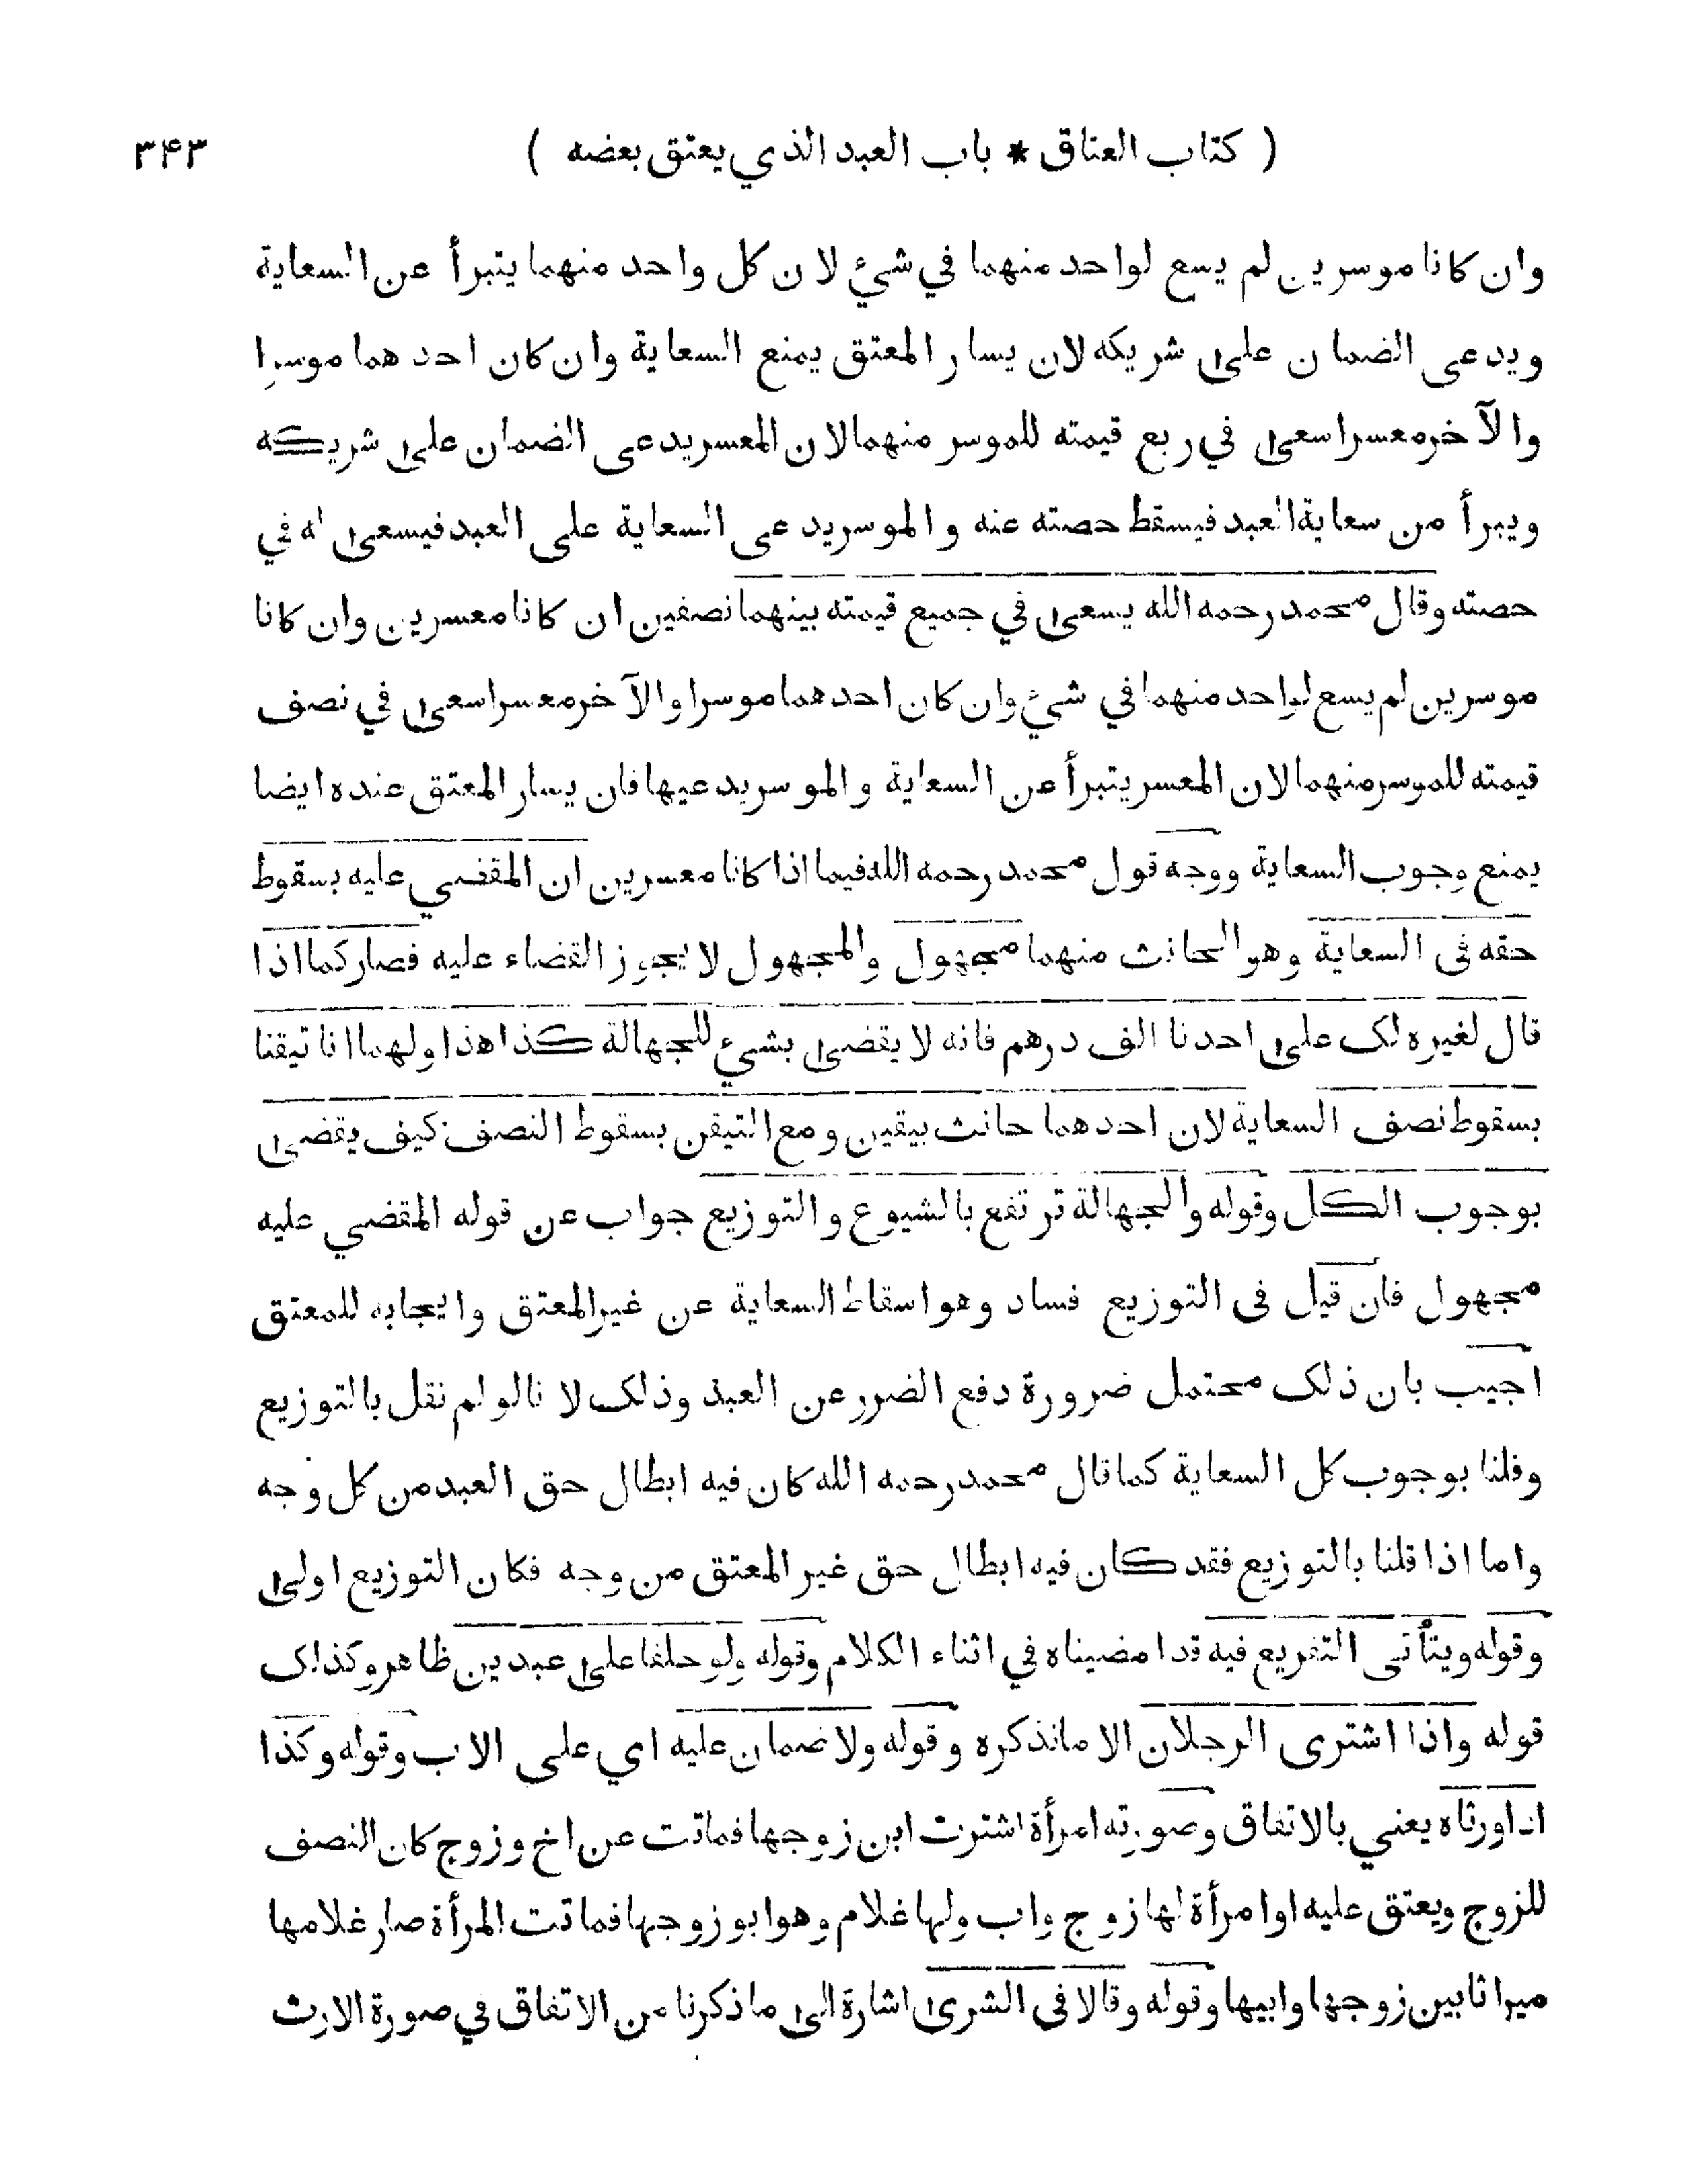 ( كتاب العتاق * باب العبد الذي يعتق بعضه ) ۳۴۳
وان كانا موسرين لم يسع لواحد منهما في شيء لان كل واحد منهما يتبرأ عن السعاية
ويدعى الضمان على شريكه لان يسار المعتق يمنع السعاية وان كان احدهما موسرا
والآخر معسرا سعى في ربع قيمته للموسر منهما لان المعسر يدعى الضمان على شريكه
ويبرأ من سعاية العبد فيسقط حصته عنه والموسر يدعى السعاية على العبد فيسعى له في
حصته وقال محمد رحمه الله يسعى في جميع قيمته بينهما نصفين ان كانا معسرين وان كانا
موسرين لم يسع لواحد منهما في شيء وان كان احدهما موسرا والآخر معسرا سعى في نصف
قيمته للموسر منهما لان المعسر يتبرأ عن السعاية والموسر يدعيها فان يسار المعتق عنده ايضا
يمنع وجوب السعاية ووجه قول محمد رحمه الله فيما اذا كانا معسرين ان المقضي عليه بسقوط
حقه في السعاية وهو الحانث منهما مجهول والمجهول لا يجوز القضاء عليه فصار كما اذا
قال لغيره لك على احدنا الف درهم فانه لا يقضى بشيء للجهالة كذا هذا ولهما انا تيقنا
بسقوط نصف السعاية لان احدهما حانث بيقين ومع التيقن بسقوط النصف كيف يقضى
بوجوب الكل وقوله والجهالة ترتفع بالشيوع والتوزيع جواب عن قوله المقضي عليه
مجهول فان قيل في التوزيع فساد وهو اسقاط السعاية عن غير المعتق وايجابه للمعتق
اجيب بان ذلك محتمل ضرورة دفع الضرر عن العبد وذلك لا نالو لم نقل بالتوزيع
وقلنا بوجوب كل السعاية كما قال محمد رحمه الله كان فيه ابطال حق العبد من كل وجه
واما اذا قلنا بالتوزيع فقد كان فيه ابطال حق غير المعتق من وجه فكان التوزيع اولى
وقوله ويتأتى التفريع فيه قد امضيناه في اثناء الكلام وقوله ولو حلفا على عبدين ظاهر وكذلك
قوله واذا اشترى الرجلان الا مانذكره وقوله ولا ضمان عليه اي على الاب وقوله وكذا
اذا ورثاه يعني بالاتفاق وصورته امرأة اشترت ابن زوجها فماتت عن اخ وزوج كان النصف
للزوج ويعتق عليه او امرأة لها زوج واب ولها غلام وهو ابو زوجها فماتت المرأة صار غلامها
ميراثا بين زوجها وابيها وقوله وقالا في الشرى اشارة الى ما ذكرنا من الاتفاق في صورة الارث